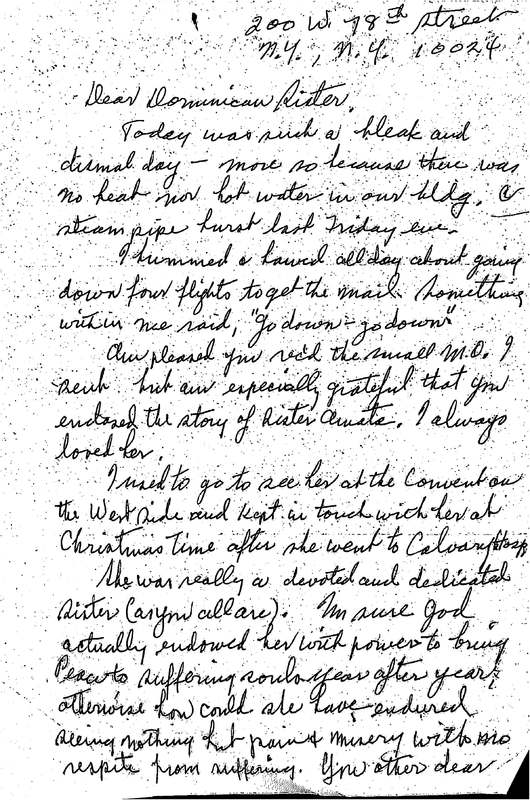 200 W. 78th Street
N.Y., N.Y. 10024
Dear Dominican Sister,
Today was such a bleak and
dismal day – more so because there was
no heat nor hot water in our bldg. A
steam pipe burst last Friday eve.
I hummed & hawed all day about going
down four flights to get the mail. Something
within me said, "Go down – go down"
Am pleased you rec'd the small M.O. I
sent but am especially grateful that you
enclosed the story of Sister Amata. I always
loved her.
I used to go to see her at the Convent on
the West Side and kept in touch with her at
Christmas Time after she went to Calvary Hosp
She was really a devoted and dedicated
Sister (as you all are). I'm sure God
actually endowed her with power to bring
Peace to suffering souls year after year;
otherwise how could she have endured
seeing nothing but pain & misery with no
respite from suffering. You other dear